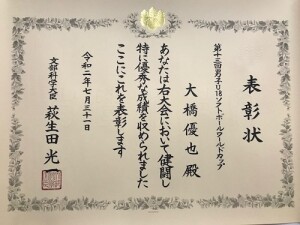 表彰状
第十三回男子U18ソフトボールワールドカップ
大橋優也殿
あなたは右大会において健闘し
特に優秀な成績を収められました
ここにこれを表彰します
令和二年七月三十一日
文部科学大臣 萩生田光一